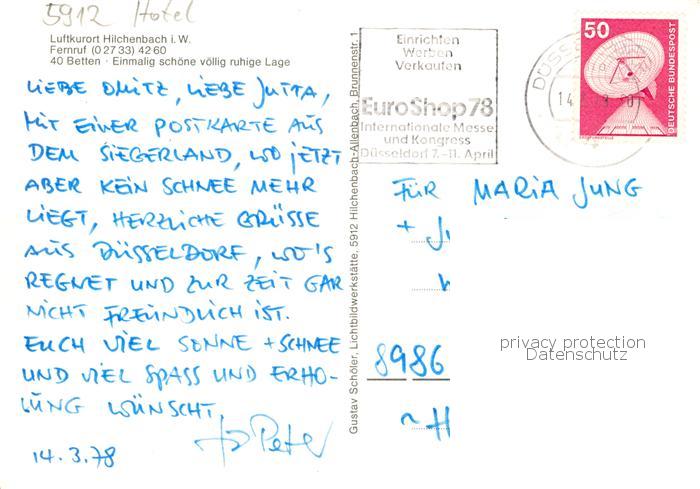 5912 Hotel
Luftkurort Hilchenbach i. W.
Fernruf (0 27 33) 42 60
40 Betten · Einmalig schöne völlig ruhige Lage
LIEBE OMITZ, LIEBE JUTTA,
MIT EINER POSTKARTE AUS
DEM SIEGERLAND, WO JETZT
ABER KEIN SCHNEE MEHR
LIEGT, HERZLICHE GRÜSSE
AUS DÜSSELDORF, WO'S
REGNET UND ZUR ZEIT GAR
NICHT FREUNDLICH IST.
EUCH VIEL SONNE + SCHNEE
UND VIEL SPASS UND ERHO-
LUNG WÜNSCHT,
Peter
14.3.78
Gustav Schöler, Lichtbildwerkstätte, 5912 Hilchenbach-Allenbach, Brunnenstr. 1
Einrichten
Werben
Verkaufen
EuroShop78
Internationale Messe
und Kongress
Düsseldorf 7.-11. April
DÜSSE
14
50
DEUTSCHE BUNDESPOST
FÜR MARIA JUNG
+ J
8986
~H
privacy protection
Datenschutz